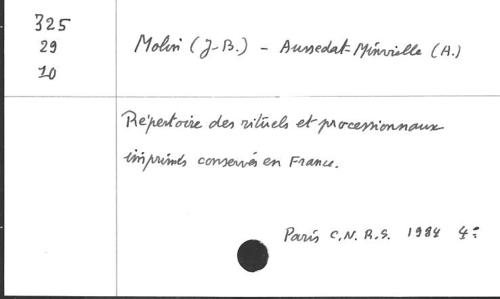 325
29
10
Molin (J-B.) - Aussedat-Minvielle (A.)
Répertoire des rituels et processionnaux
imprimés conservés en France.
Paris C.N.R.S. 1984 4º